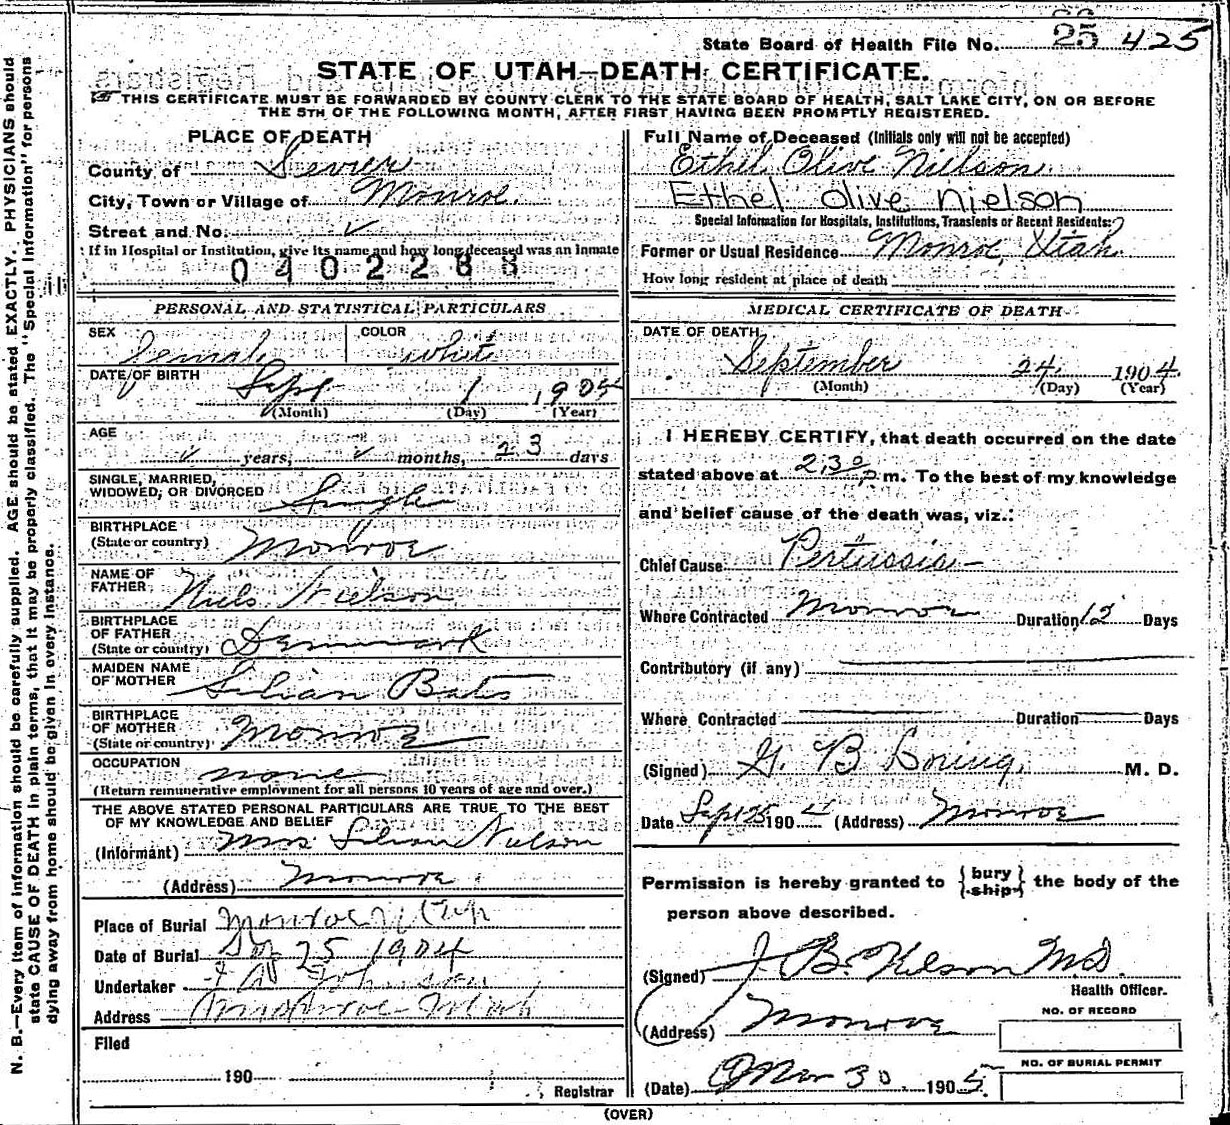 State Board of Health File No. 25 425
STATE OF UTAH—DEATH CERTIFICATE.
THIS CERTIFICATE MUST BE FORWARDED BY COUNTY CLERK TO THE STATE BOARD OF HEALTH, SALT LAKE CITY, ON OR BEFORE
THE 5TH OF THE FOLLOWING MONTH, AFTER FIRST HAVING BEEN PROMPTLY REGISTERED.
PLACE OF DEATH
County of Sevier
City, Town or Village of Monroe.
Street and No. √
If in Hospital or Institution, give its name and how long deceased was an inmate
0402288
PERSONAL AND STATISTICAL PARTICULARS
SEX Female COLOR White
DATE OF BIRTH Sept 1, 1904
(Month) (Day) (Year)
AGE
√ years, √ months, 23 days
SINGLE, MARRIED,
WIDOWED, OR DIVORCED Single
BIRTHPLACE
(State or country) Monroe
NAME OF
FATHER Niels Nielson
BIRTHPLACE
OF FATHER
(State or country) Denmark
MAIDEN NAME
OF MOTHER Lilian Bates
BIRTHPLACE
OF MOTHER
(State or country) Monroe
OCCUPATION none
(Return remunerative employment for all persons 10 years of age and over.)
THE ABOVE STATED PERSONAL PARTICULARS ARE TRUE TO THE BEST
OF MY KNOWLEDGE AND BELIEF
(Informant) Mrs Lilian Nielson
(Address) Monroe
Place of Burial Monroe Utah
Date of Burial Sep 25 1904
Undertaker Johnson
Address Monroe Utah
Filed
190
Registrar
Full Name of Deceased (Initials only will not be accepted)
Ethel Olive Nielson
Ethel Olive Nielson
Special Information for Hospitals, Institutions, Transients or Recent Residents:
Former or Usual Residence Monroe, Utah.
How long resident at place of death
MEDICAL CERTIFICATE OF DEATH
DATE OF DEATH
September 24, 1904.
(Month) (Day) (Year)
I HEREBY CERTIFY, that death occurred on the date
stated above at 2,30 p m. To the best of my knowledge
and belief cause of the death was, viz.:
Chief Cause Pertussis
Where Contracted Monroe Duration 12 Days
Contributory (if any)
Where Contracted Duration Days
(Signed) G. B Loring, M. D.
Date Sept 25 1904 (Address) Monroe
Permission is hereby granted to {bury ship} the body of the
person above described.
(Signed) J. B. Nelson MD.
Health Officer.
(Address) Monroe
NO. OF RECORD
NO. OF BURIAL PERMIT
(Date) Mar 30 1905
(OVER)
N. B.—Every item of information should be carefully supplied. AGE should be stated EXACTLY. PHYSICIANS should
state CAUSE OF DEATH in plain terms, that it may be properly classified. The "Special Information" for persons
dying away from home should be given in every instance.